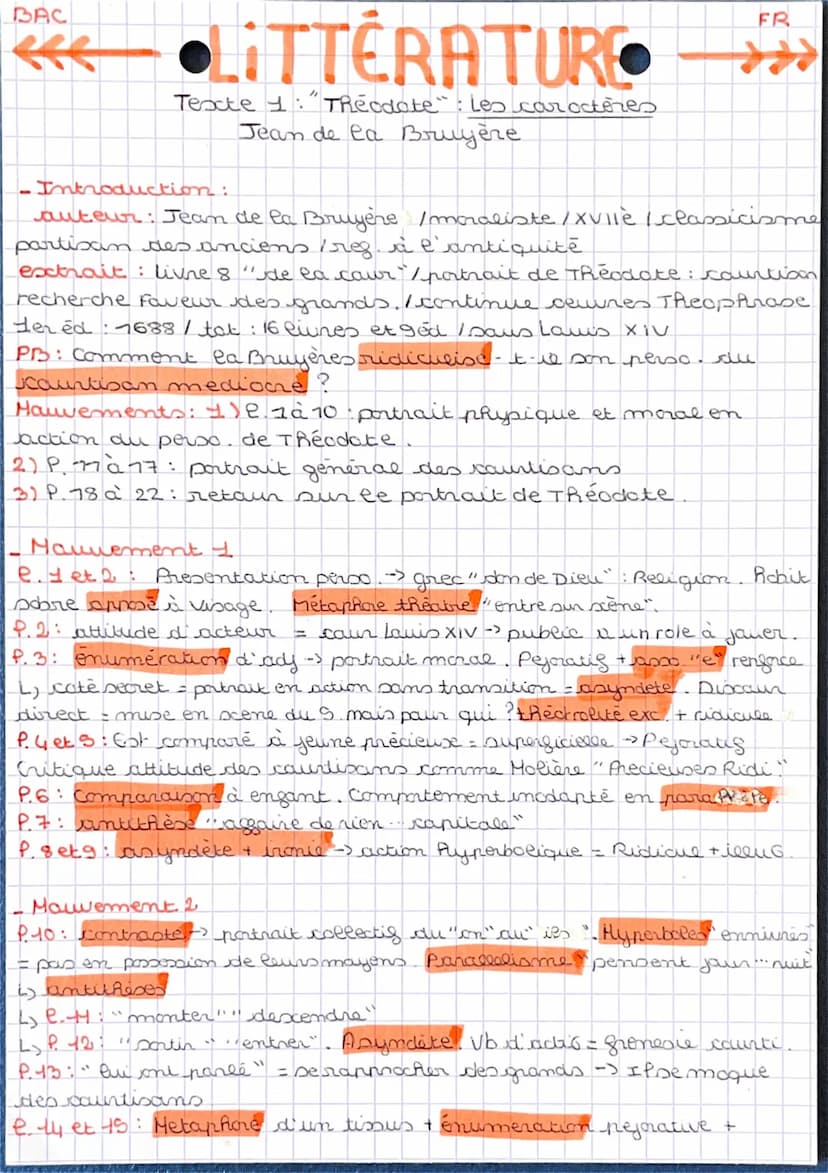 BAC
FR
LiTTÉRATURE
Texte 1 : "Théodote" : Les caractères
Jean de la Bruyère
- Introduction :
auteur : Jean de la Bruyère / moraliste / XVIIè / classicisme
partisan des anciens / ref. à l'antiquité
extrait : livre 8 "de la cour" / portrait de Théodote : courtisan
recherche faveur des grands. / continue oeuvres Theophrase
1er éd : 1688 / tot : 16 livres et 9éd / sous Louis XIV
PB : Comment la Bruyères ridiculise-t-il son perso. du
courtisan mediocre ?
Mouvements : 1) l. 1 à 10 : portrait physique et moral en
action du perso. de Théodote.
2) l. 11 à 17 : portrait général des courtisans
3) l. 18 à 22 : retour sur le portrait de Théodote.
- Mouvement 1
l. 1 et 2 : Presentation perso. -> grec "don de Dieu" : Religion. Habit
sobre opposé à visage. Métaphore théatre "entre sur scène".
l. 2 : attitude d'acteur = cour Louis XIV -> public a un role à jouer.
l. 3 : énumération d'adj -> portrait moral. Pejoratif + asso "e" renforce
L> coté secret = portrait en action sans transition = asyndete. Discour
direct = mise en scene du S. mais pour qui ? théâtralité exc. + ridicule
l. 4 et 5 : Est comparé à jeune précieuse = superficielle -> Pejoratif
Critique attitude des courtisans comme Molière "Precieuses Ridi."
l. 6 : Comparaison à enfant. Comportement inadapté en
l. 7 : antithèse "affaire de rien ... capitale"
l. 8 et 9 : asyndète + ironie -> action hyperbolique = Ridicul + illus.
- Mouvement 2
l. 10 : contraste -> portrait collectif du "on" au "ils". Hyperboles "enniurés"
= pas en possession de leurs moyens. Parallelisme "pensent jour ... nuit"
L> antithèses
L> l. 11 : "monter" "descendre"
L> l. 12 : "sortir" "entrer". Asyndète. Vb d'actio = frenesie courti.
l. 13 : "lui ont parlé" = se rapprocher des grands -> Il se moque
des courtisans
l. 14 et 15 : Metaphore d'un tissus + énumeration pejorative +